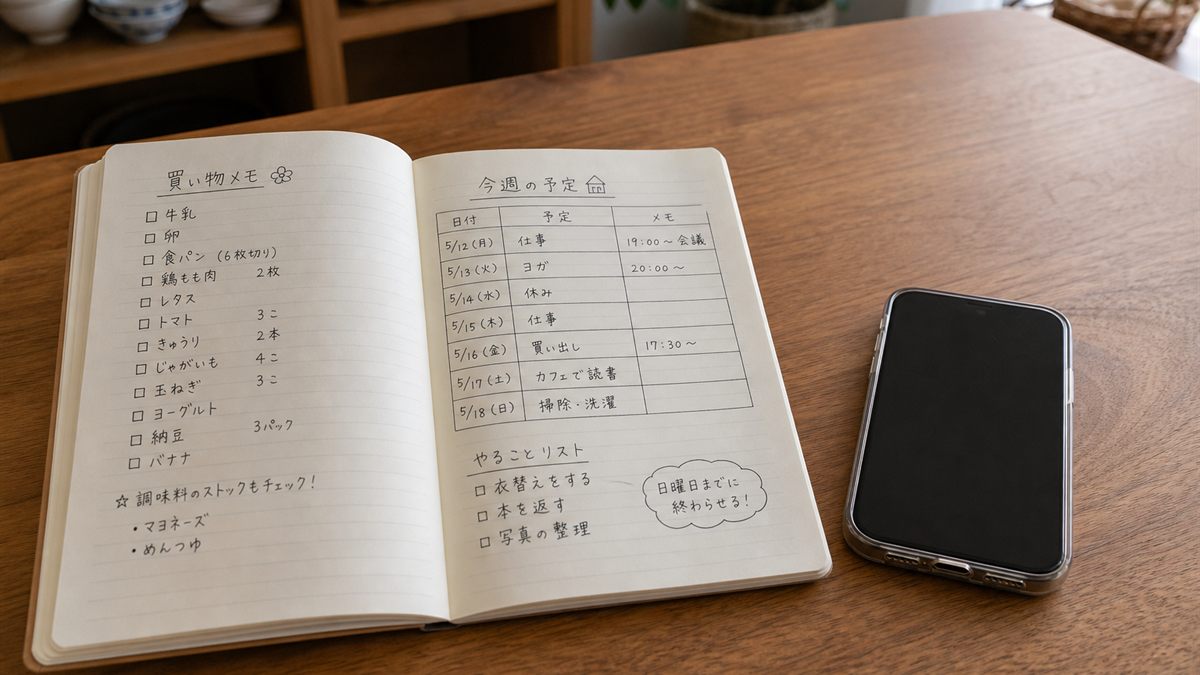 買い物メモ
□ 牛乳
□ 卵
□ 食パン (6枚切り)
□ 鶏もも肉 2枚
□ レタス
□ トマト 3こ
□ きゅうり 2本
□ じゃがいも 4こ
□ 玉ねぎ 3こ
□ ヨーグルト
□ 納豆 3パック
□ バナナ
☆ 調味料のストックもチェック!
・マヨネーズ
・めんつゆ
今週の予定
日付 予定 メモ
5/12(月) 仕事 19:00〜会議
5/13(火) ヨガ 20:00〜
5/14(水) 休み
5/15(木) 仕事
5/16(金) 買い出し 17:30〜
5/17(土) カフェで読書
5/18(日) 掃除・洗濯
やることリスト
□ 衣替えをする
□ 本を返す
□ 写真の整理
日曜日までに
終わらせる!